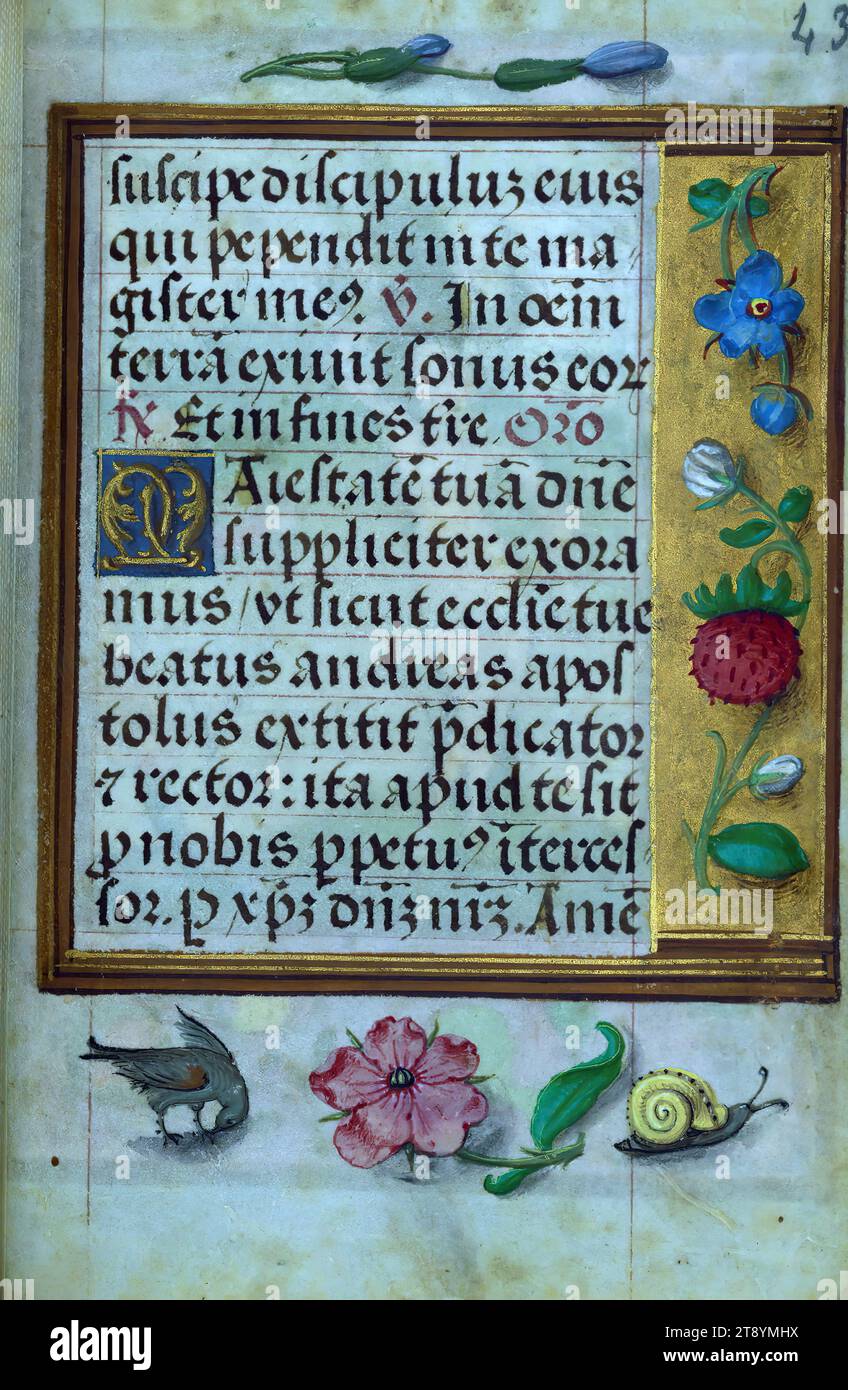 43
suscipe discipuluꝫ eius
qui pependit in te ma
gister meꝰ. ℣. In oēm
terrā exiuit sonus eoꝛ
℟. Et in fines tr̄e. Or̄o
Maiestatē tuā dn̄e
suppliciter exora
mus / vt sicut eccl̄ie tue
beatus andreas apos
tolus extitit p̄dicator
⁊ rector: ita apud te sit
ꝓ nobis ꝑpetuꝰ īterces
sor. ꝑ xp̄ꝫ dn̄ꝫ nr̄ꝫ. Amē
alamy
Image ID: 2T8YMHX
www.alamy.com